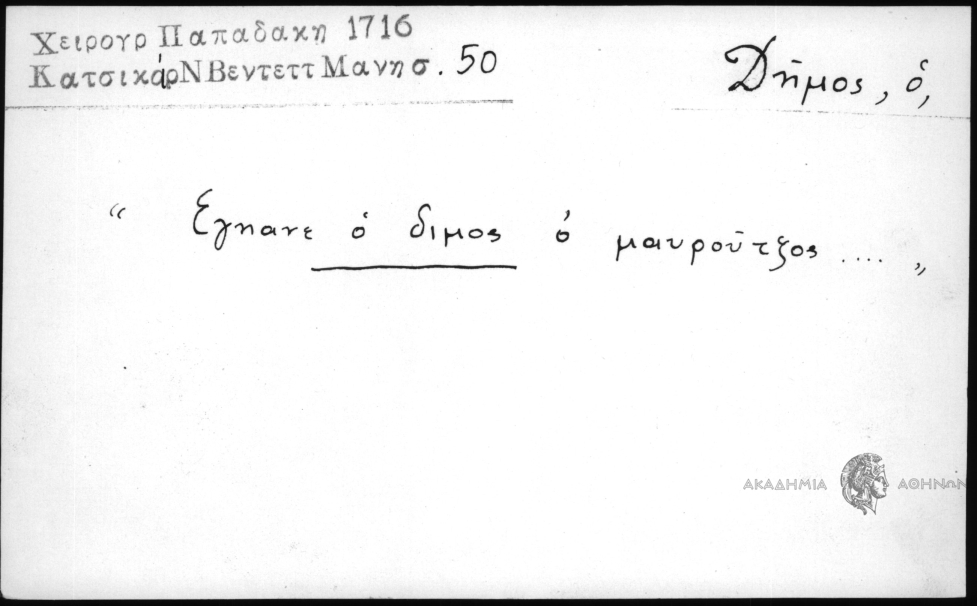 Χειρογρ Παπαδακη 1716
ΚατσικάρΝΒεντεττΜανησ.50
Δῆμος, ὁ,
“ Εγηανε ὁ διμος ὁ μαυροῦτζος .... „
ΑΚΑΔΗΜΙΑ ΑΘΗΝΩΝ